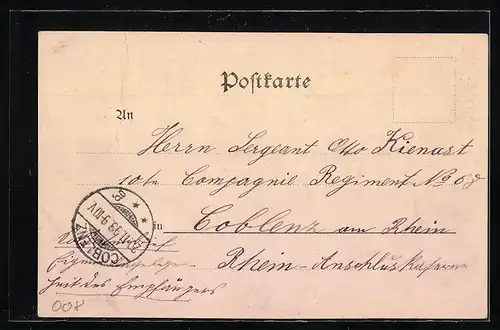 Postkarte
An
Herrn Sergeant Otto Kienast
10te Compagnie Regiment No 68
in Coblenz am Rhein
Rhein-Anschluskaserne
heit des Empfängers
COBLENZ
008